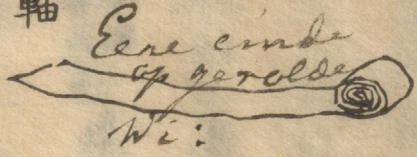 軸
Eene einde
op gerolde
Wi: